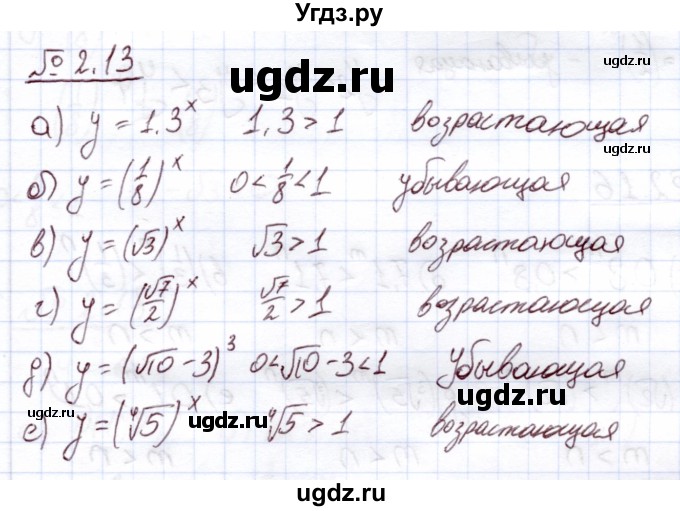 Угдз.ру
№ 2.13
ugdz.ru
а) y = 1,3^x 1,3 > 1 возрастающая
ugdz.ru
б) y = (1/8)^x 0 < 1/8 < 1 убывающая
в) y = (√3)^x √3 > 1 возрастающая
г) y = (√7/2)^x √7/2 > 1 возрастающая
д) y = (√10 - 3)^3 0 < √10 - 3 < 1 убывающая
ugdz.ru
ugdz.ru
е) y = (∜5)^x ∜5 > 1 возрастающая
ugdz.ru